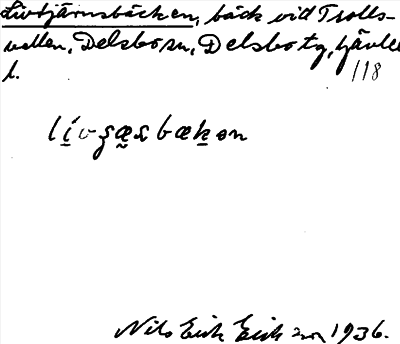 Livtjärnsbäcken, bäck vid Trolls-
vallen, Delsbo sn, Delsbo tg, Gävleb.
l.
118
Nils Erik Eriksson 1936.